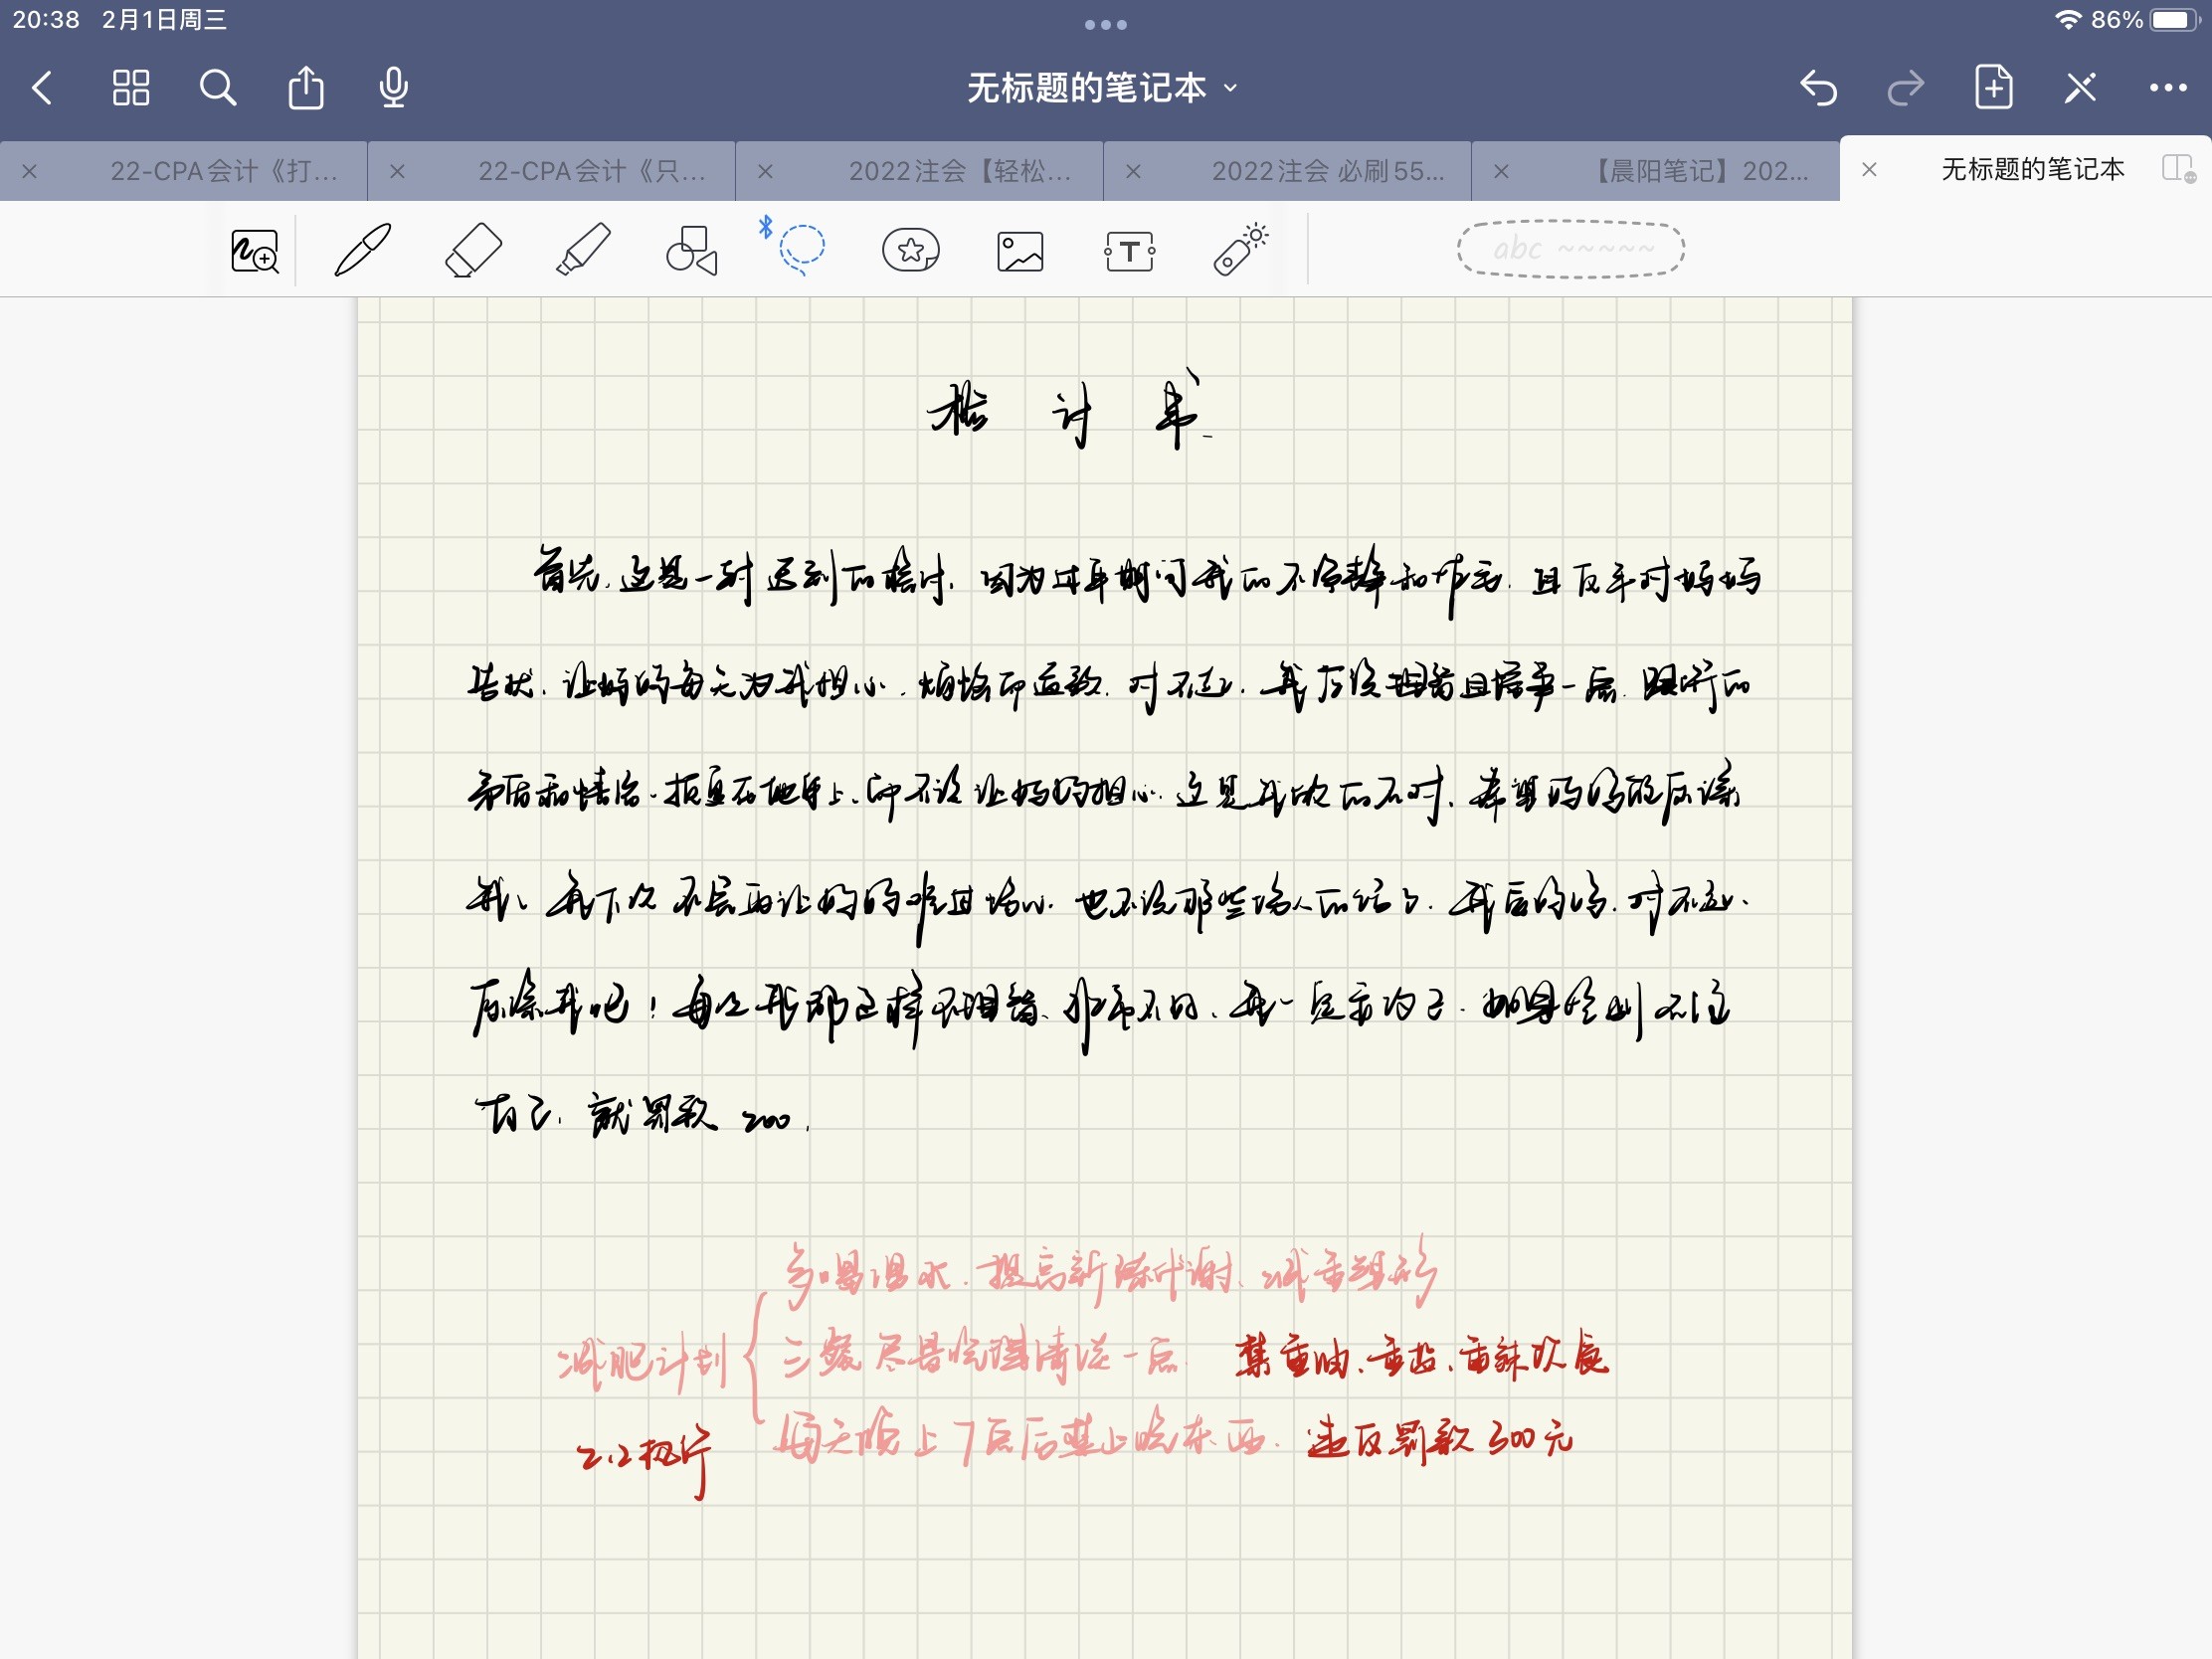 20:38 2月1日周三
86%
无标题的笔记本
22-CPA会计《打...
22-CPA会计《只...
2022注会【轻松...
2022注会 必刷55...
【晨阳笔记】202...
无标题的笔记本
abc
检讨书
首先,这是一封迟到的检讨,因为过年期间我的不冷静和作毛,且反手对妈妈
告状,让妈妈每天为我担心,烦恼而道歉,对不起,我应该理智且懂事一点,跟所的
矛盾和情绪,括直在他身上,而不该让妈妈担心,这是我做的不对,希望妈妈能原谅
我,我下次不会再让妈妈难过伤心,也不说那些伤人的话了,我后悔的,对不起,
原谅我吧!每次我都这样不理智,非常不好,我一定要改正,如果控制不住
自己,就罚款200,
减肥计划
多喝温水,提高新陈代谢,减重塑形
三餐尽量吃清淡一点 禁重油、重盐、重辣饮食
每天晚上7点后禁止吃东西. 违反罚款300元
2.2执行